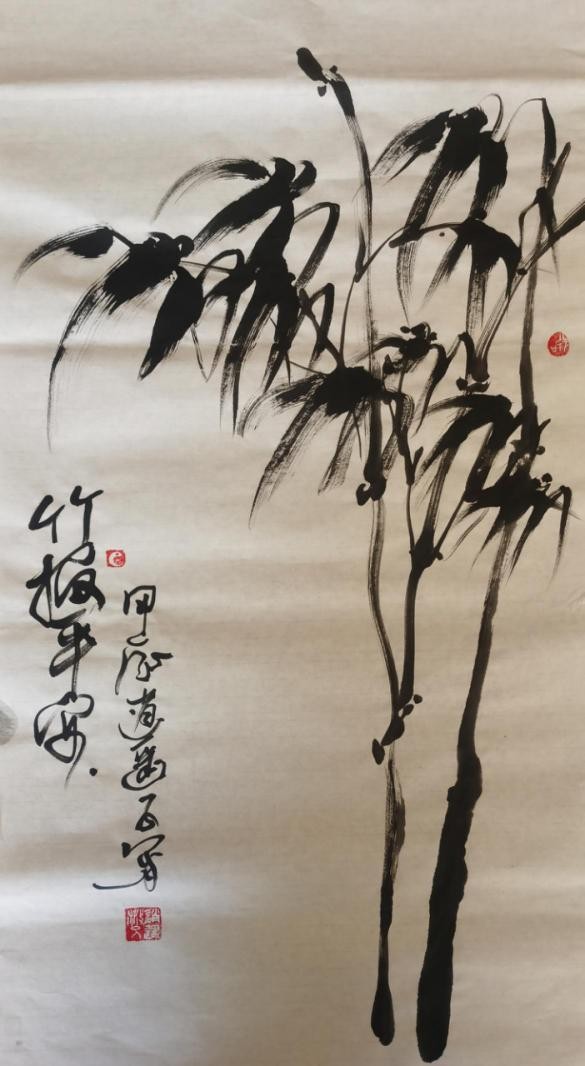 竹报平安
甲辰逍遥石写